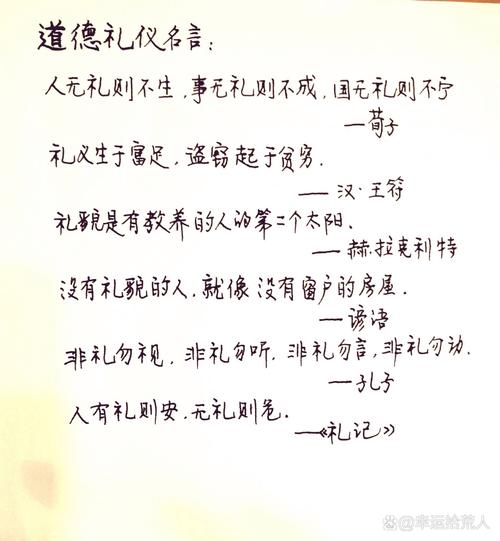 道德礼仪名言：
人无礼则不生，事无礼则不成，国无礼则不宁
—荀子
礼义生于富足，盗窃起于贫穷．
—— 汉·王符
礼貌是有教养的人的第二个太阳．
—— 赫·拉克利特
没有礼貌的人．就像没有窗户的房屋．
—谚语
非礼勿视，非礼勿听，非礼勿言，非礼勿动．
—孔子
人有礼则安，无礼则危．
—《礼记》
@幸运给荒人